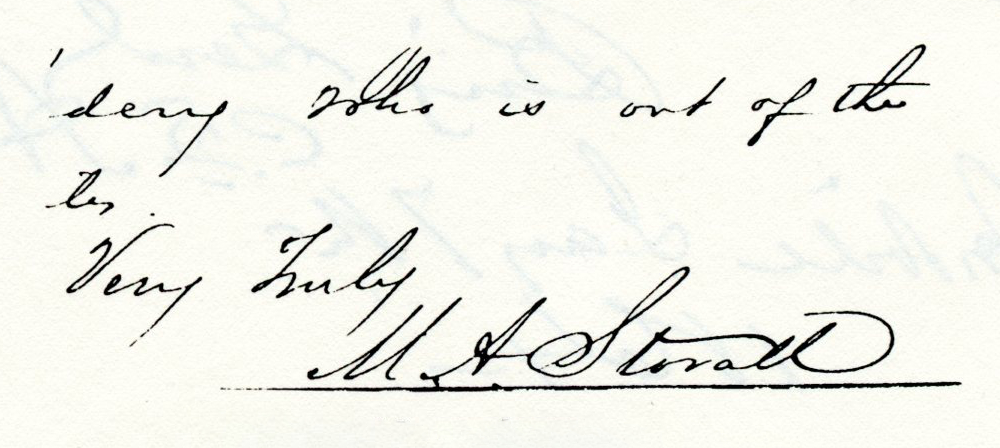 who is out of the
Very Truly
M. A. Stovall